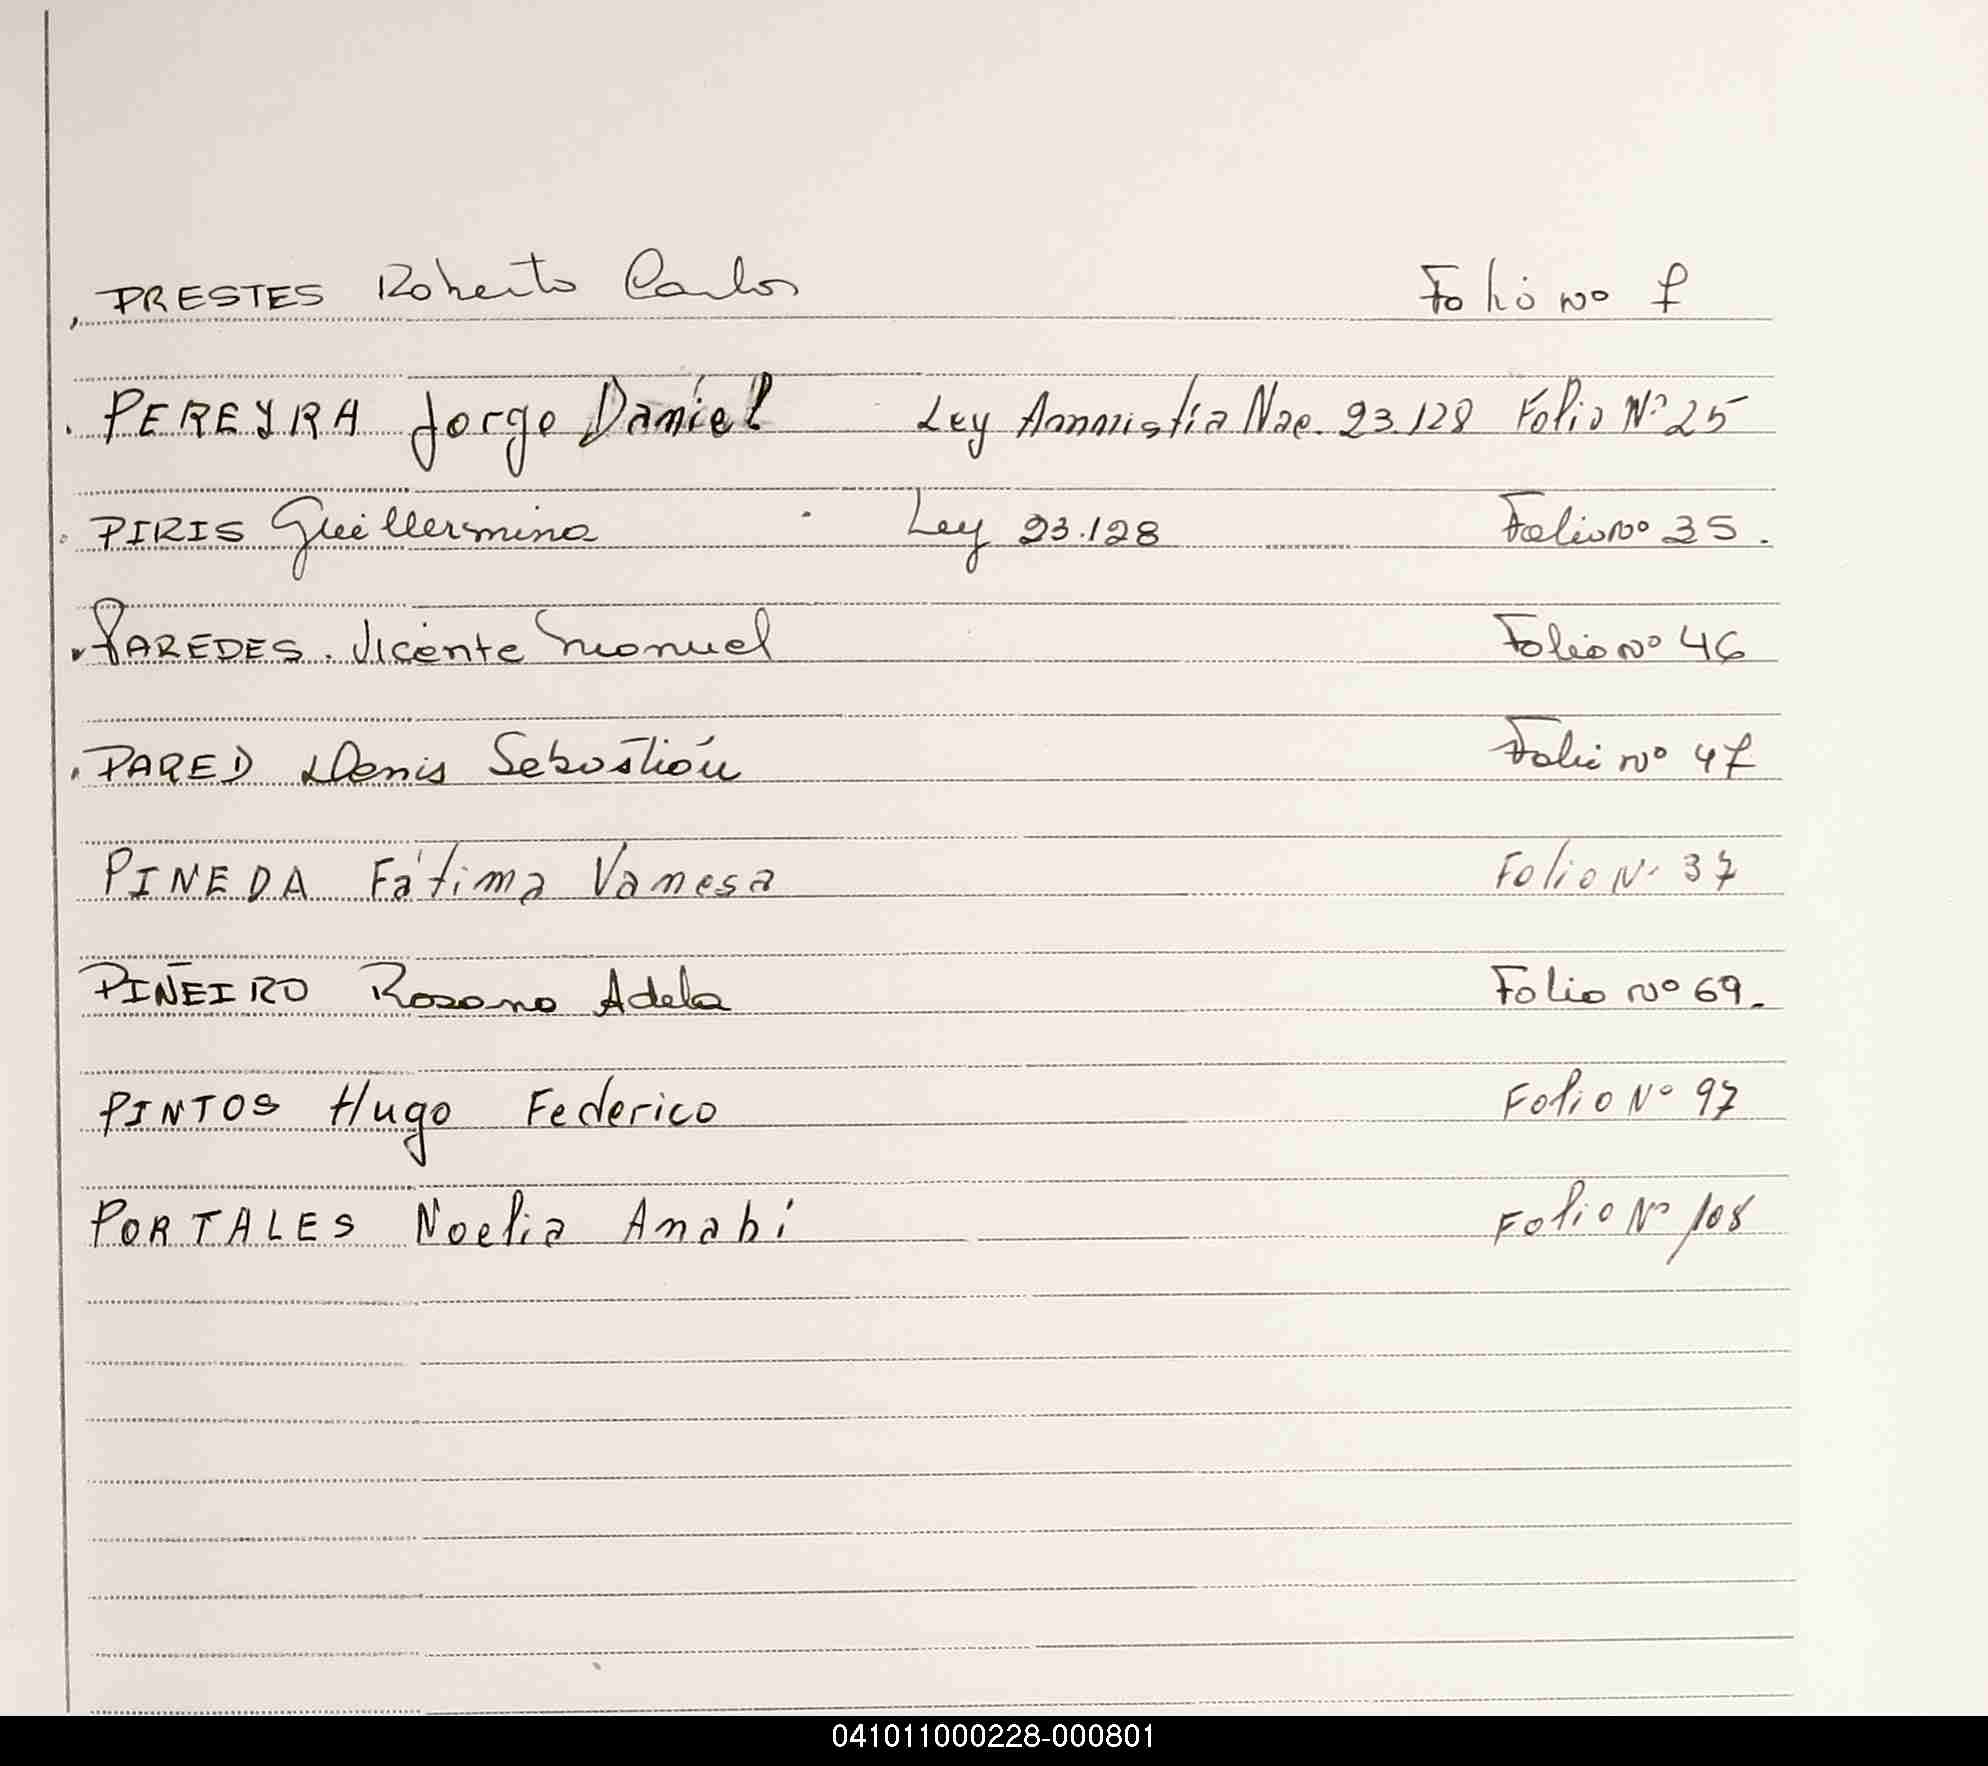 PRESTES Roberto Carlos Folio nº 7
PEREYRA Jorge Daniel Ley Amnistía Nac. 23.128 Folio Nº 25
PIRIS Guillermina Ley 23.128 Folio nº 35.
PAREDES. Vicente Manuel Folio nº 46
PARED Denis Sebastián Folio nº 47
PINEDA Fátima Vanesa Folio Nº 37
PIÑEIRO Rosana Adela Folio nº 69.
PINTOS Hugo Federico Folio Nº 97
PORTALES Noelia Anahí Folio Nº 108
041011000228-000801